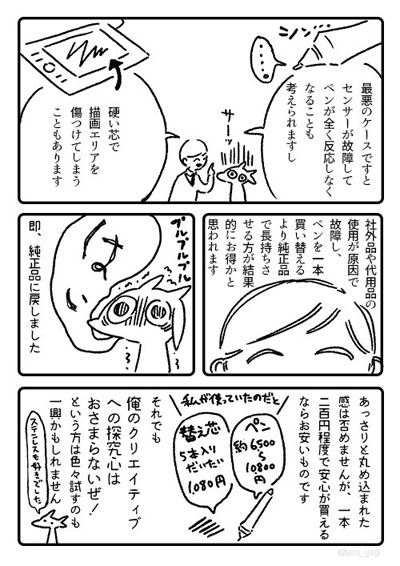 シーン…
…。
最悪のケースですと
センサーが故障して
ペンが全く反応しなく
なることも
考えられますし
サーッ
硬い芯で
描画エリアを
傷つけてしまう
こともあります
社外品や代用品の
使用が原因で
故障し、
ペンを一本
買い替える
より純正品
で長持ちさ
せる方が結果
的にお得かと
思われます
プルプルプル
即、純正品に戻しました
あっさりと丸め込まれた
感は否めませんが、一本
二百円程度で安心が買える
ならお安いものです
私が使っていたのだと
ペン
約6500
〜
10,800
円
替え芯
5本入り
だいたい
1,080円
それでも
俺のクリエイティブ
への探究心は
おさまらないぜ!
という方は色々試すのも
一興かもしれません
ステンレスも好きでした
@ani_yagi